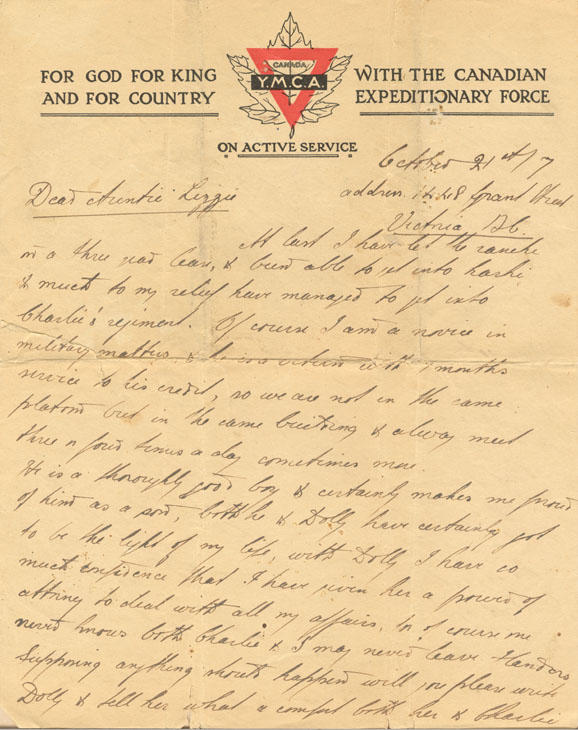 FOR GOD FOR KING
AND FOR COUNTRY
CANADA
Y.M.C.A.
WITH THE CANADIAN
EXPEDITIONARY FORCE
ON ACTIVE SERVICE
October 21st/17
address 1248 Grant Street
Victoria, B.C.
Dear Auntie Lizzie
At last I have let the ranche
on a three year lease, & been able to get into harki
& much to my relief have managed to get into
Charlie's regiment. Of course I am a novice in
military matters & he is a veteran with 7 months
service to his credit, so we are not in the same
platoon but in the same building & alway meet
three or four times a day sometimes more.
He is a thoroughly good boy & certainly makes me proud
of him as a son, both he & Dolly have certainly got
to be the light of my life, with Dolly I have so
much confidence that I have given her a power of
attorney to deal with all my affairs, for of course one
never knows both Charlie & I may never leave Flanders
Supposing anything should happen will you please write
Dolly & tell her what a comfort both her & Charlie